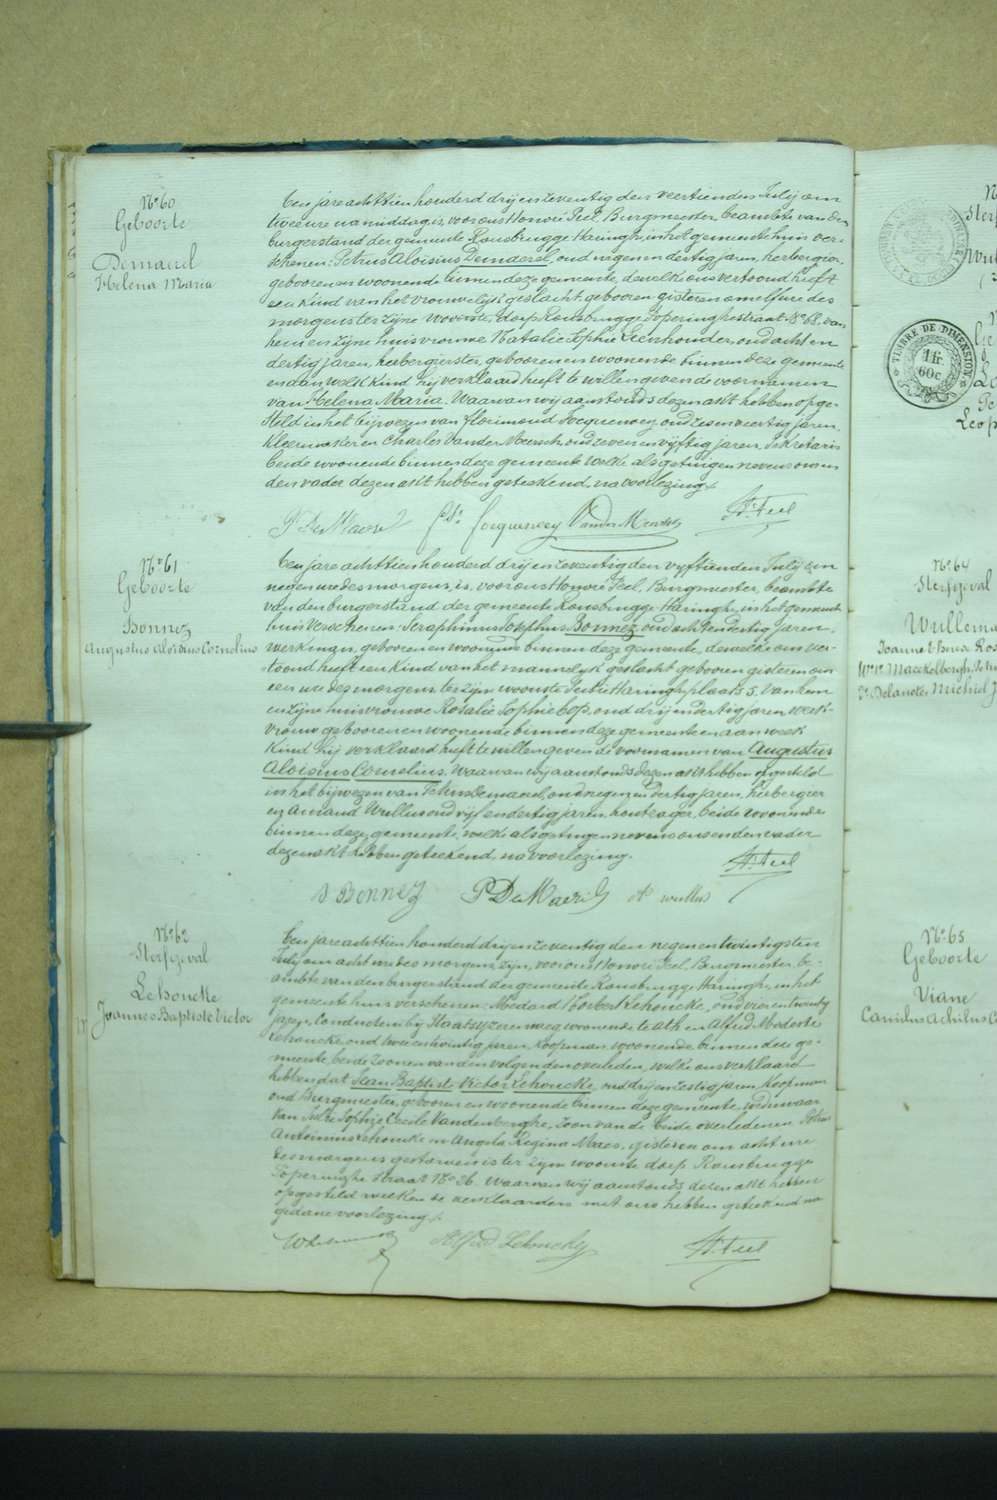 N° 60
Geboorte
Demaerel
Helena Maria
Ten jare achttien honderd drij en zeventig den veertienden Julij om
twee ure namiddag, is voor ons Honoré Feel, Burgmeester, beambte van den
burgerstand der gemeente Rousbrugge Haringhe, in het gemeente huis ver-
schenen: Petrus Aloisius Demaerel, oud negen en dertig jaren, herbergier,
gebooren en woonende binnen deze gemeente, dewelke ons vertoond heeft
een kind van het vrouwelijk geslacht, gebooren gisteren om elf ure des
morgens ter zijne wooste, dorp Rousbrugge Poperinghestraat N° 68, van
hem en zijne huisvrouwe Natalie Sophie Leenhouder, oud acht en
dertig jaren, herbergierster, gebooren en woonende binnen deze gemeente
en aan welk kind hij verklaard heeft te willen geven de voornamen
van Helena Maria. Waarvan wij aanstonds dezen akt hebben opge-
steld in het bijwezen van florimond Jocquenoey oud zes en veertig jaren,
Kleermaker en Charles Vander Meersch oud zeven en vijftig jaren, Sekretaris
beide woonende binnen deze gemeente welke als getuigen nevens ons en
den vader dezen akt hebben geteekend, na voorlezing.
P DeMaerel Jocquenoey VanderMeersch H. Feel
N° 61
Geboorte
Bonnez
Augustus Aloisius Cornelius
Ten jare achttien honderd drij en zeventig den vyftienden Julij om
negen ure des morgens, is voor ons Honoré Feel, Burgmeester, beambte
van den burgerstand der gemeente Rousbrugge Haringhe, in het gemeente
huis verschenen: Seraphinus Josephus Bonnez oud acht en dertig jaren,
werkman, gebooren en woonende binnen deze gemeente, dewelke ons ver-
toond heeft een kind van het mannelijk geslacht gebooren gisteren om
een ure des morgens ter zijn wooste Sectie Haringhe plaats 5, van hem
en zijne huisvrouwe Rosalie Sophie Cop, oud drij en dertig jaren, werk-
vrouw gebooren en woonende binnen deze gemeente en aan welk
kind hij verklaard heeft te willen geven de voornamen van Augustus
Aloisius Cornelius. Waarvan wij aanstonds dezen akt hebben opgesteld
in het bijwezen van Petrus Demaerel, oud negen en dertig jaren, herbergier
en Amand Wullus oud vijf en dertig jaren, houtzager, beide woonende
binnen deze gemeente, welke als getuigen nevens ons en den vader
dezen akt hebben geteekend, na voorlezing.
H. Feel
S Bonnez P DeMaerel A wullus
N° 62
Sterfgeval
Lehoucke
Joannes Baptiste Victor
Ten jare achttien honderd drij en zeventig den negen en twintigsten
Julij om acht ure des morgens zijn, voor ons Honoré Feel, Burgmeester, be-
ambte van den burgerstand der gemeente Rousbrugge Haringhe, in het
gemeente huis verschenen: Medard Norbert Lehoucke, oud vier en twintig
jaren, Conducteur bij Staatsyzerenweg woonende te Ath en Alfred Modeste
Lehoucke, oud twee en twintig jaren, Koopman, woonende binnen deze ge-
meente, beide zoonen van den volgenden overleden, welke ons verklaard
hebben dat Jean Baptiste Victor Lehoucke, oud drij en zestig jaren, Koopman
oud Burgmeester, gebooren en woonende binnen deze gemeente, weduwaar
van Julie Sophie Cecile Vandenberghe, zoon van de beide overledenen Petrus
Antonius Lehoucke en Angela Regina Maes, gisteren om acht ure
des morgens gestorven is ter zijne wooste dorp Rousbrugge
Poperinghe straat N° 26. Waarvan wij aanstonds dezen akt hebben
opgesteld welken de verklaarders met ons hebben geteekend na
gedane voorlezing.
Alfred Lehoucke H. Feel
TIMBRE DE DIMENSION
1 fr.
60c
Leop
N° 64
Sterfgeval
Wullem
N° 65
Geboorte
Viane
Camilus Achilus C